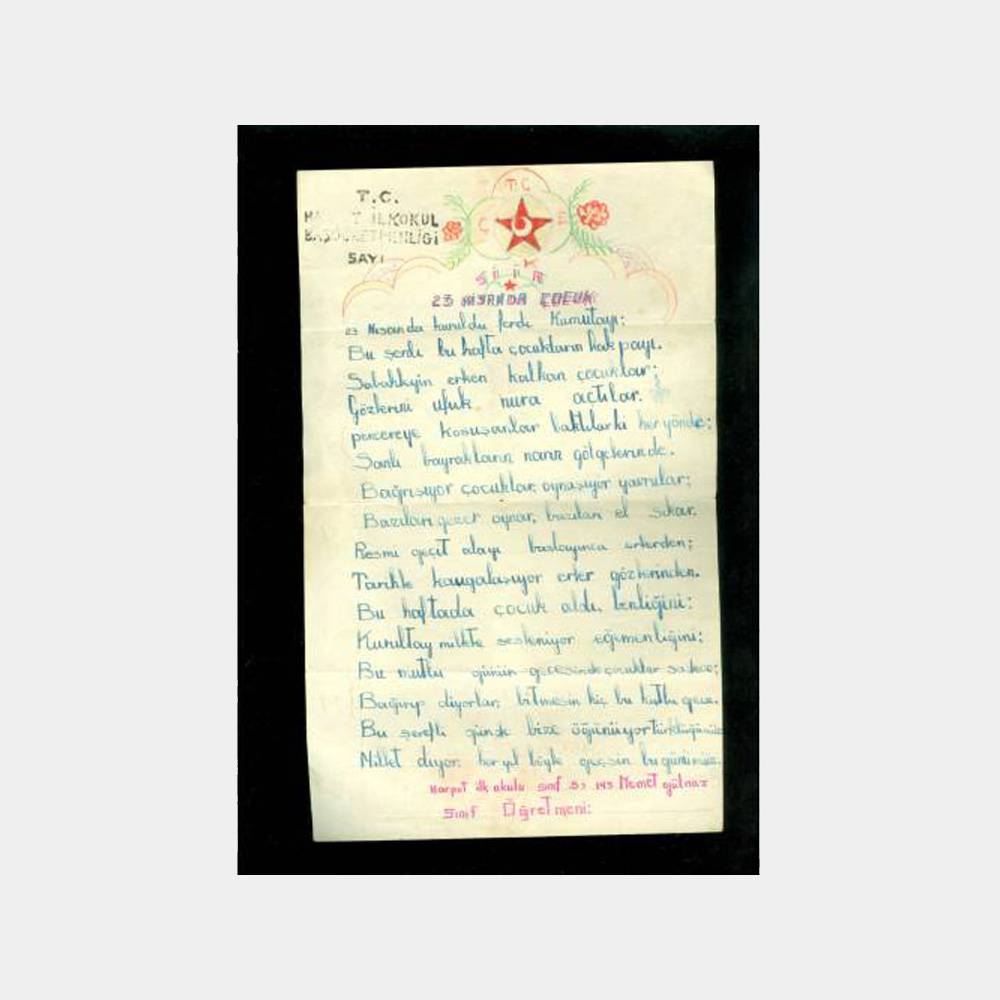 T.C.
HARPUT İLKOKUL
BAŞÖĞRETMENLİĞİ
SAYI
T C
Ç E
K
ŞİİR
23 NİSANDA ÇOCUK
23 Nisanda kuruldu ferdi Kamutayı:
Bu şenli bu hafta çocukların hak payı.
Sabahleyin erken kalkan çocuklar;
Gözlerini ufuk nura açtılar.
pencereye koşuşanlar baktılarki her yönde;
Şanlı bayrakların narin gölgelerinde.
Bağrışıyor çocuklar, oynaşıyor yavrular;
Bazıları gezer oynar, bazıları el sıkar.
Resmi geçit alayı başlayınca erkenden;
Tarihle kavgalaşıyor erler gözlerinden.
Bu haftada çocuk aldı, benliğini:
Kurultay millete sesleniyor eğemenliğini;
Bu mutlu günün gecesinde çocuklar sadece;
Bağırıp diyorlar; bitmesin hiç bu kutlu gece.
Bu şerefli günde bize öğünüyor türklüğümüz
Millet diyor, her yıl böyle geçsin bu günümüz.
Harput ilk okulu sınıf 5, 143 Memet gülnaz
Sınıf Öğretmeni: